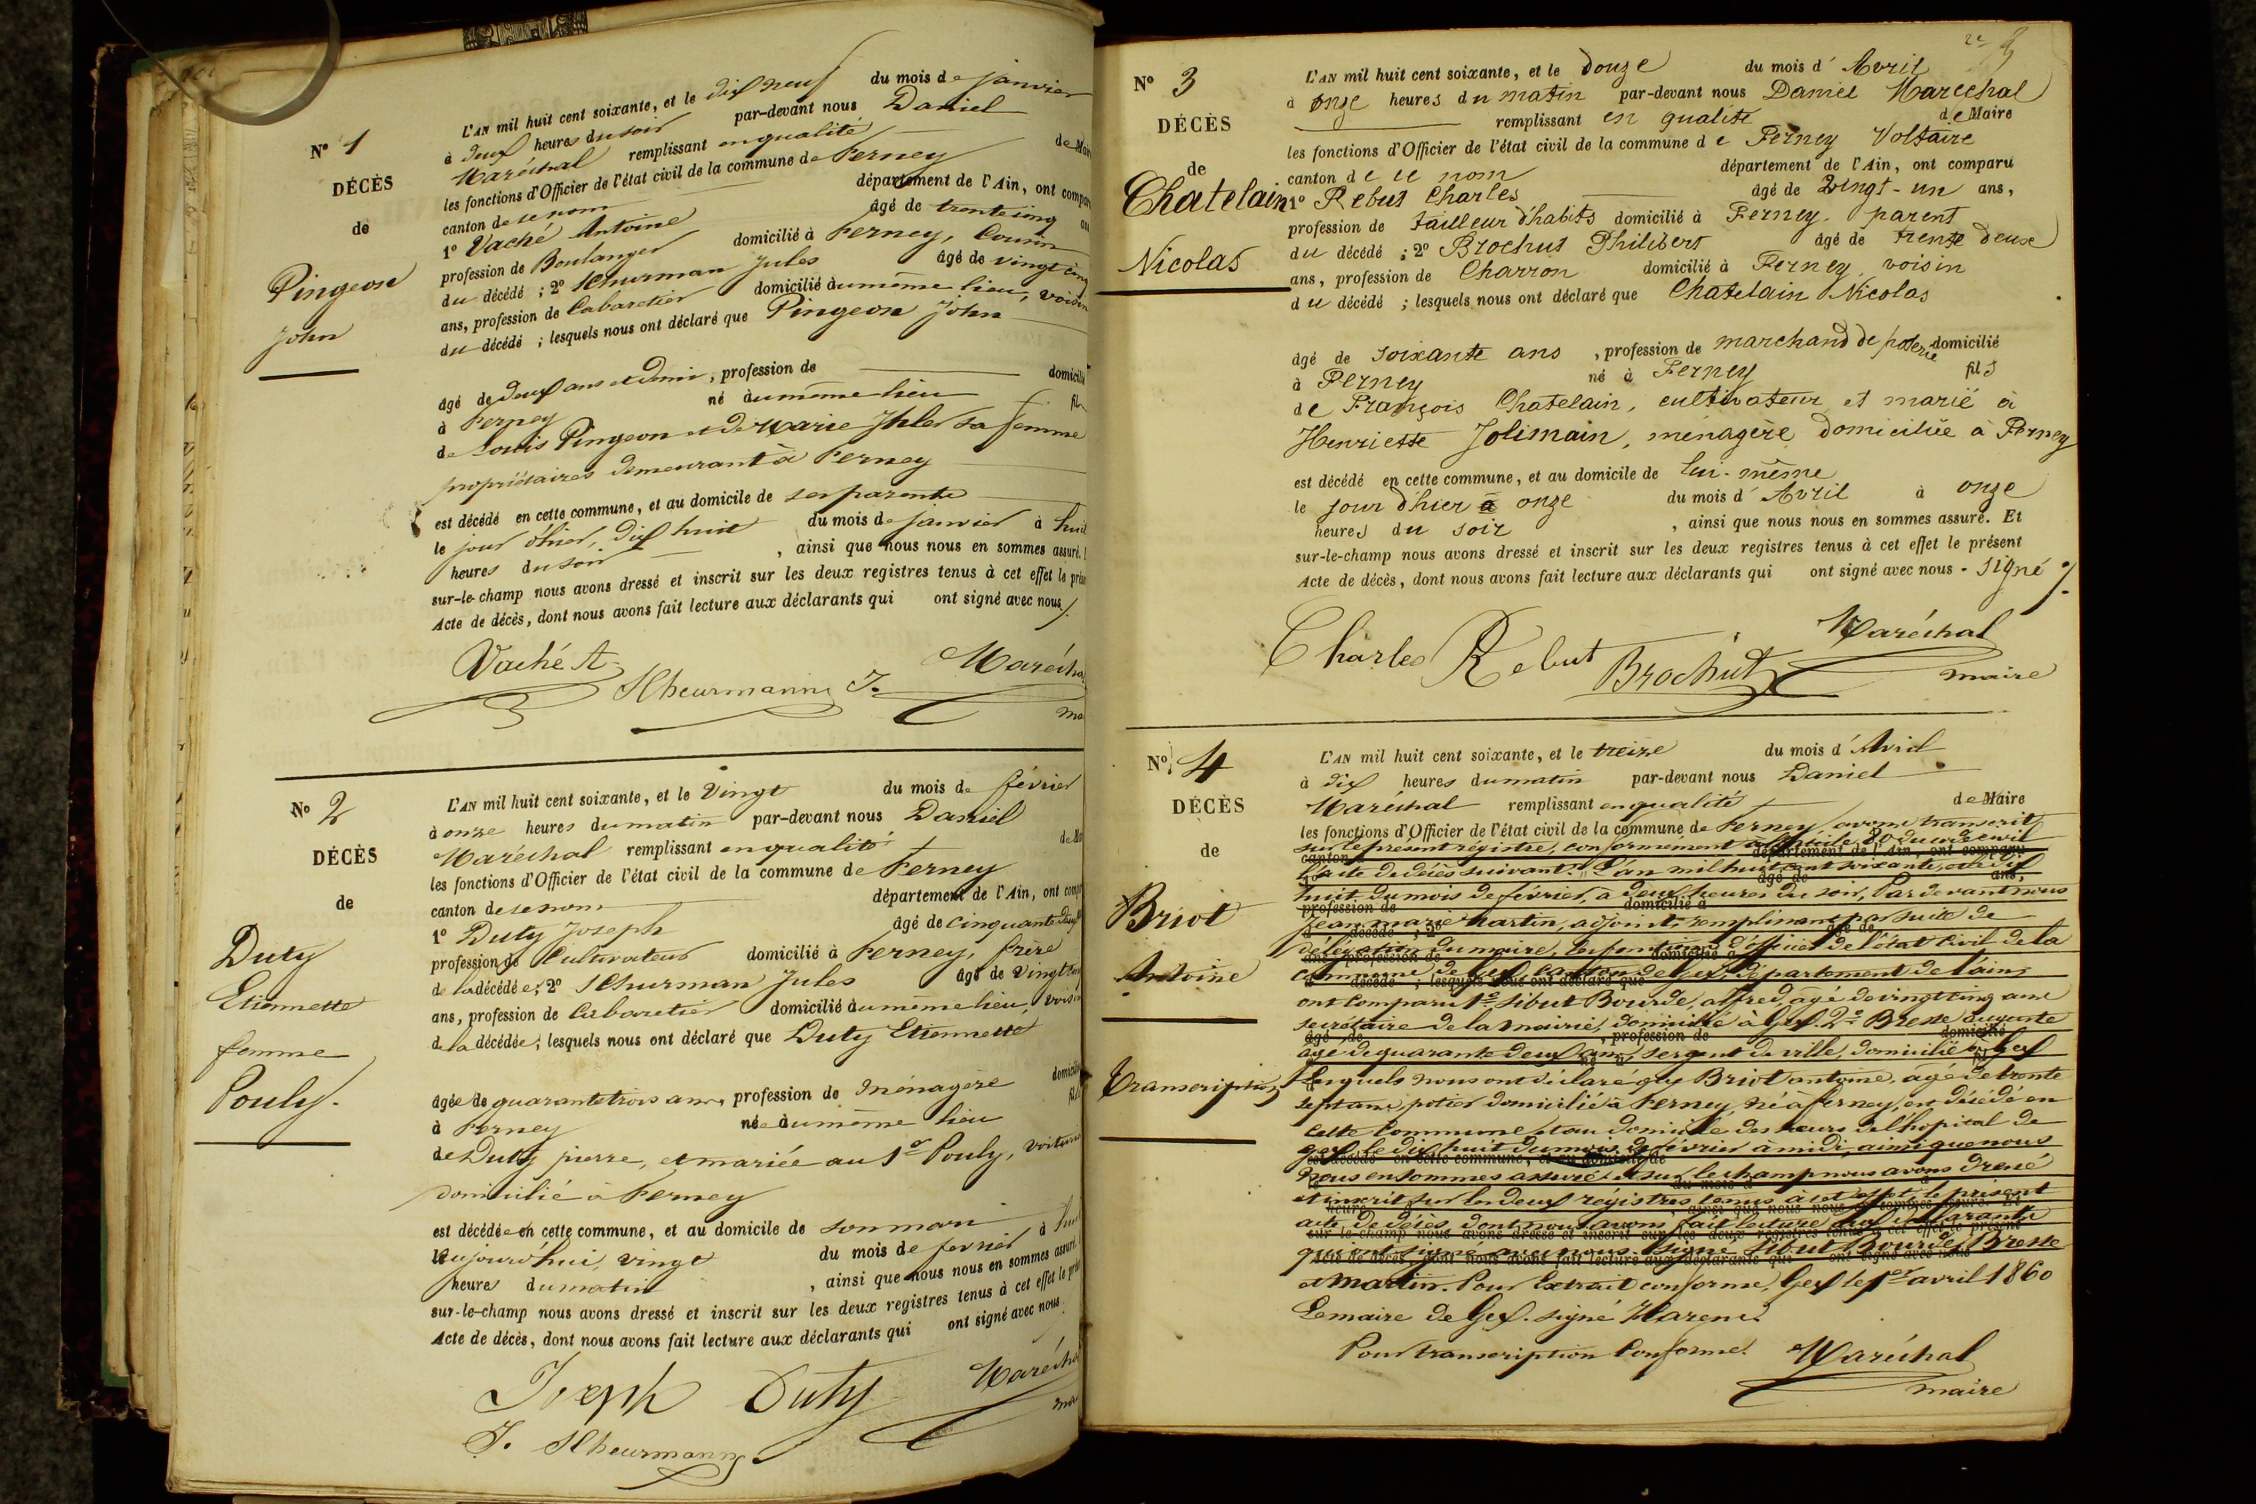 Nº 1
DÉCÈS
de
Pingeon
John
L'AN mil huit cent soixante, et le dix neuf du mois de janvier
à deux heures du soir par-devant nous Daniel
Maréchal remplissant en qualité de Mair
les fonctions d'Officier de l'état civil de la commune de Ferney
canton de ce nom département de l'Ain, ont compar
1º Vaché Antoine âgé de trente cinq an
profession de Boulanger domicilié à Ferney, Cousin
du décédé ; 2º Schurman Jules âgé de vingt cinq
ans, profession de Cabaretier domicilié au même lieu, voisin
du décédé ; lesquels nous ont déclaré que Pingeon John
âgé de deux ans et demi, profession de domicilié
à Ferney né au même lieu fils
de Louis Pingeon et de Marie Ihler sa femme
propriétaires demeurant à Ferney
est décédé en cette commune, et au domicile de ses parents
le jour d'hier, dix huit du mois de janvier à huit
heures du soir, ainsi que nous nous en sommes assuré.
sur-le-champ nous avons dressé et inscrit sur les deux registres tenus à cet effet le prése
Acte de décès, dont nous avons fait lecture aux déclarants qui ont signé avec nous./.
Vaché A
Scheurmann J.
Marécha
ma
Nº 2
DÉCÈS
de
Duty
Etiennette
femme
Pouly.
L'AN mil huit cent soixante, et le Vingt du mois de février
à onze heures du matin par-devant nous Daniel
Maréchal remplissant en qualité de Ma
les fonctions d'Officier de l'état civil de la commune de Ferney
canton de ce nom département de l'Ain, ont compa
1º Duty Joseph âgé de cinquante deux
profession de Cultivateur domicilié à Ferney, frère
de la décédée; 2º Schurman Jules âgé de vingt cinq
ans, profession de Cabaretier domicilié au même lieu, voisin
de la décédée; lesquels nous ont déclaré que Duty Etiennette
âgée de quarante trois ans, profession de Ménagère domicilié
à Ferney née au même lieu fille
de Duty pierre, et mariée au Sr Pouly, voiturie
domicilié à Ferney
est décédée en cette commune, et au domicile de son mari à huit
le aujourd'hui, vingt du mois de février
heure du matin, ainsi que nous nous en sommes assuré.
sur-le-champ nous avons dressé et inscrit sur les deux registres tenus à cet effet le prés
Acte de décès, dont nous avons fait lecture aux déclarants qui ont signé avec nous.
Joseph Duty
Marécha
ma
J. Scheurmann
Nº 3
DÉCÈS
de
Chatelain
Nicolas
L'AN mil huit cent soixante, et le douze du mois d' Avril
à onze heures du matin par-devant nous Daniel Maréchal
remplissant en qualité de Maire
les fonctions d'Officier de l'état civil de la commune de Ferney Voltaire
canton de ce nom département de l'Ain, ont comparu
1º Rebut Charles âgé de vingt-un ans,
profession de tailleur d'habits domicilié à Ferney. parent
du décédé ; 2º Brochut Philibert âgé de trente deux
ans, profession de Charron domicilié à Ferney, voisin
du décédé ; lesquels nous ont déclaré que Chatelain Nicolas
âgé de soixante ans, profession de marchand de poterie domicilié
à Ferney né à Ferney fils
de François Chatelain, cultivateur et marié à
Henriette Jolimain, ménagère domiciliée à Ferney
est décédé en cette commune, et au domicile de lui-même
le jour d'hier à onze du mois d' Avril à onze
heures du soir, ainsi que nous nous en sommes assuré. Et
sur-le-champ nous avons dressé et inscrit sur les deux registres tenus à cet effet le présent
Acte de décès, dont nous avons fait lecture aux déclarants qui ont signé avec nous. Signé ./.
Charles Rebut
Brochut
Maréchal
maire
Nº 4
DÉCÈS
de
Briot
Antoine
Transcription
L'AN mil huit cent soixante, et le treize du mois d' Avril
à dix heures du matin par-devant nous Daniel
Maréchal remplissant en qualité de Maire
les fonctions d'Officier de l'état civil de la commune de Ferney avons transcrit
sur le présent registre, conformément à l'article 80 du code civil
l'acte de décès suivant: "L'an mil huit cent soixante, et le dix
huit du mois de février, à deux heures du soir, Par devant nous
jean marie Martin, adjoint, remplissant par suite de
délégation du maire, les fonctions d'officier de l'état Civil de la
commune de Gex, Canton de Gex, département de l'ain,
ont Comparu 1º Sibut Bourde, alfred, âgé de vingt cinq ans
secrétaire de la Mairie, domicilié à Gex. 2º Bresse auguste
âgé de quarante deux ans, sergent de ville, domicilié à Gex
lesquels nous ont déclaré que Briot antoine, âgé de trente
sept ans, potier domicilié à Ferney, né à ferney, est décédé en
cette Commune et au domicile des sœurs de l'hôpital de
gex, le dix huit du mois de février à midi, ainsi que nous
nous en sommes assuré. et sur le champ nous avons dressé
et inscrit sur les deux régistres tenus à cet effet, le présent
acte de décès, dont nous avons fait lecture aux déclarants
qui ont signé avec nous. signé Sibut Bourde, Bresse
et Martin. Pour Extrait conforme, Gex le 1er avril 1860
Le maire de Gex. signé
Pour transcription Conforme.
Maréchal
maire